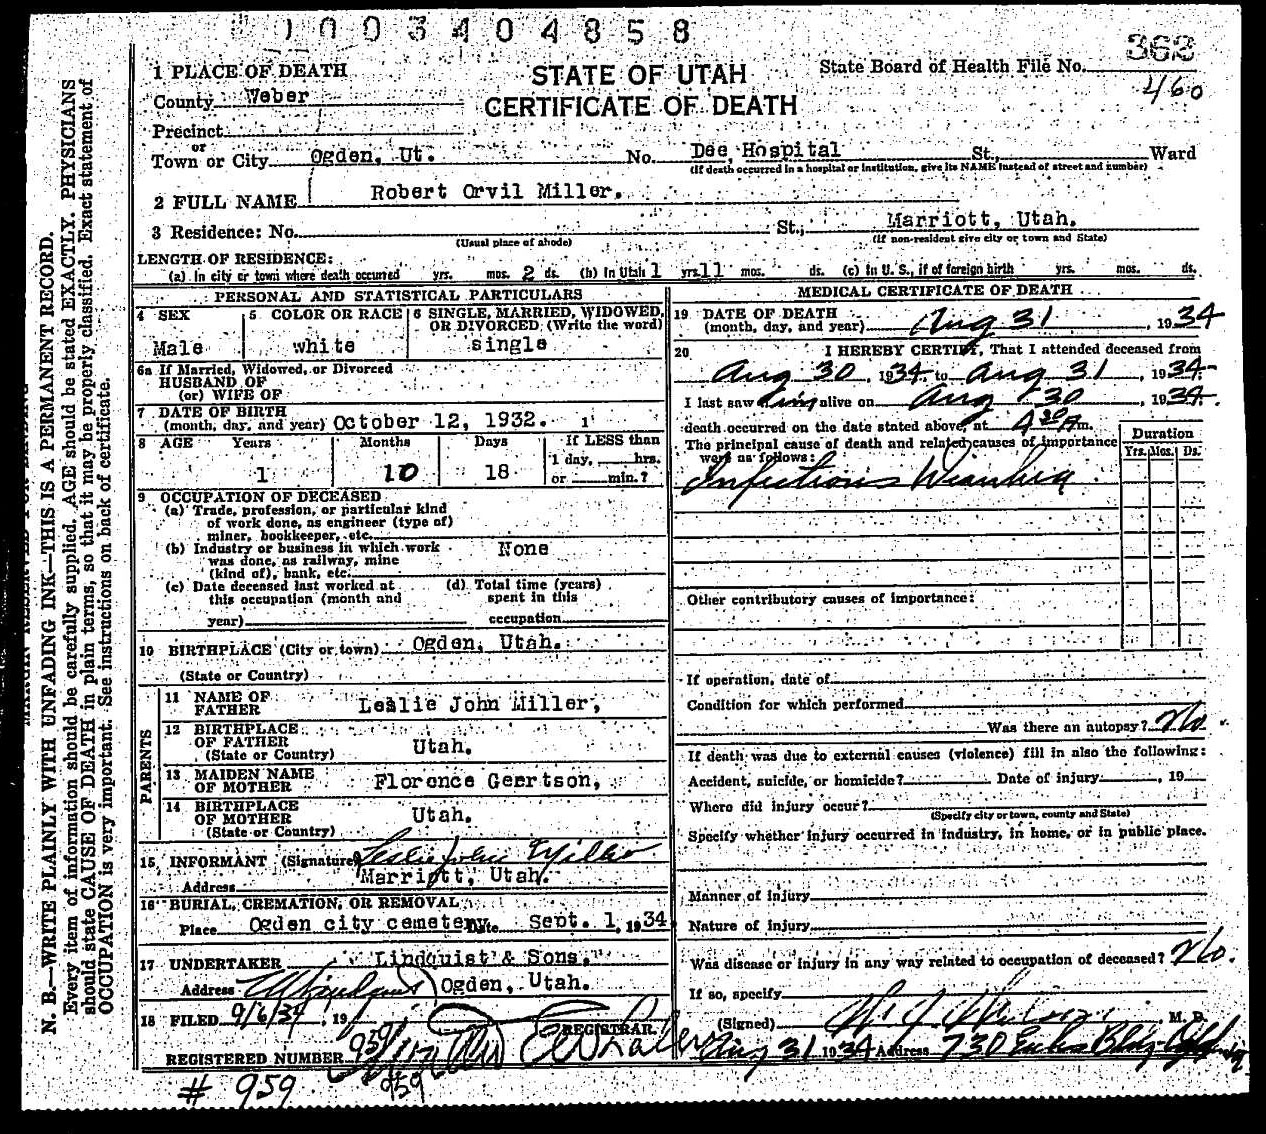 1003404858
363
460
STATE OF UTAH
CERTIFICATE OF DEATH
State Board of Health File No.
1 PLACE OF DEATH
County Weber
Precinct
or
Town or City Ogden, Ut. No. Dee, Hospital St., Ward
(If death occurred in a hospital or institution, give its NAME instead of street and number)
2 FULL NAME Robert Orvil Miller.
3 Residence: No. St., Marriott, Utah.
(Usual place of abode) (If non-resident give city or town and State)
LENGTH OF RESIDENCE:
(a) In city or town where death occurred yrs. mos. 2 ds. (b) In Utah 1 yrs. 11 mos. ds. (c) In U. S., if of foreign birth yrs. mos. ds.
PERSONAL AND STATISTICAL PARTICULARS
4 SEX
Male
5 COLOR OR RACE
white
6 SINGLE, MARRIED, WIDOWED,
OR DIVORCED (Write the word)
single
6a If Married, Widowed, or Divorced
HUSBAND OF
(or) WIFE OF
7 DATE OF BIRTH
(month, day, and year) October 12, 1932.
8 AGE Years Months Days If LESS than
1 day, hrs.
1 10 18 or min.?
9 OCCUPATION OF DECEASED
(a) Trade, profession, or particular kind
of work done, as engineer (type of)
miner, bookkeeper, etc.
(b) Industry or business in which work
was done, as railway, mine
(kind of), bank, etc.
None
(c) Date deceased last worked at
this occupation (month and
year)
(d) Total time (years)
spent in this
occupation
10 BIRTHPLACE (City or town) Ogden, Utah.
(State or Country)
PARENTS
11 NAME OF
FATHER Leslie John Miller,
12 BIRTHPLACE
OF FATHER
(State or Country) Utah.
13 MAIDEN NAME
OF MOTHER Florence Geertson,
14 BIRTHPLACE
OF MOTHER
(State or Country) Utah.
15 INFORMANT (Signature) Leslie John Miller
Address Marriott, Utah.
16 BURIAL, CREMATION, OR REMOVAL
Place Ogden city cemetery Date Sept. 1, 1934
17 UNDERTAKER Lindquist & Sons,
Address Ogden, Utah.
18 FILED 9/6/34, 19
REGISTRAR.
REGISTERED NUMBER
# 959
959
MEDICAL CERTIFICATE OF DEATH
19 DATE OF DEATH
(month, day, and year) Aug 31, 1934
20 I HEREBY CERTIFY, That I attended deceased from
Aug 30, 1934, to Aug 31, 1934.
I last saw him alive on Aug 30, 1934.
death occurred on the date stated above, at 4 30 A m.
The principal cause of death and related causes of importance
were as follows:
Duration
Yrs. Mos. Ds.
Infectious Diarrhea
Other contributory causes of importance:
If operation, date of
Condition for which performed
Was there an autopsy? No.
If death was due to external causes (violence) fill in also the following:
Accident, suicide, or homicide? Date of injury, 19
Where did injury occur?
(Specify city or town, county and State)
Specify whether injury occurred in industry, in home, or in public place.
Manner of injury
Nature of injury
Was disease or injury in any way related to occupation of deceased? No.
If so, specify
(Signed), M. D.
Aug 31 1934 Address 730 Eccles Bldg. Ogden
N. B.—WRITE PLAINLY WITH UNFADING INK—THIS IS A PERMANENT RECORD.
Every item of information should be carefully supplied. AGE should be stated EXACTLY. PHYSICIANS
should state CAUSE OF DEATH in plain terms, so that it may be properly classified. Exact statement of
OCCUPATION is very important. See instructions on back of certificate.